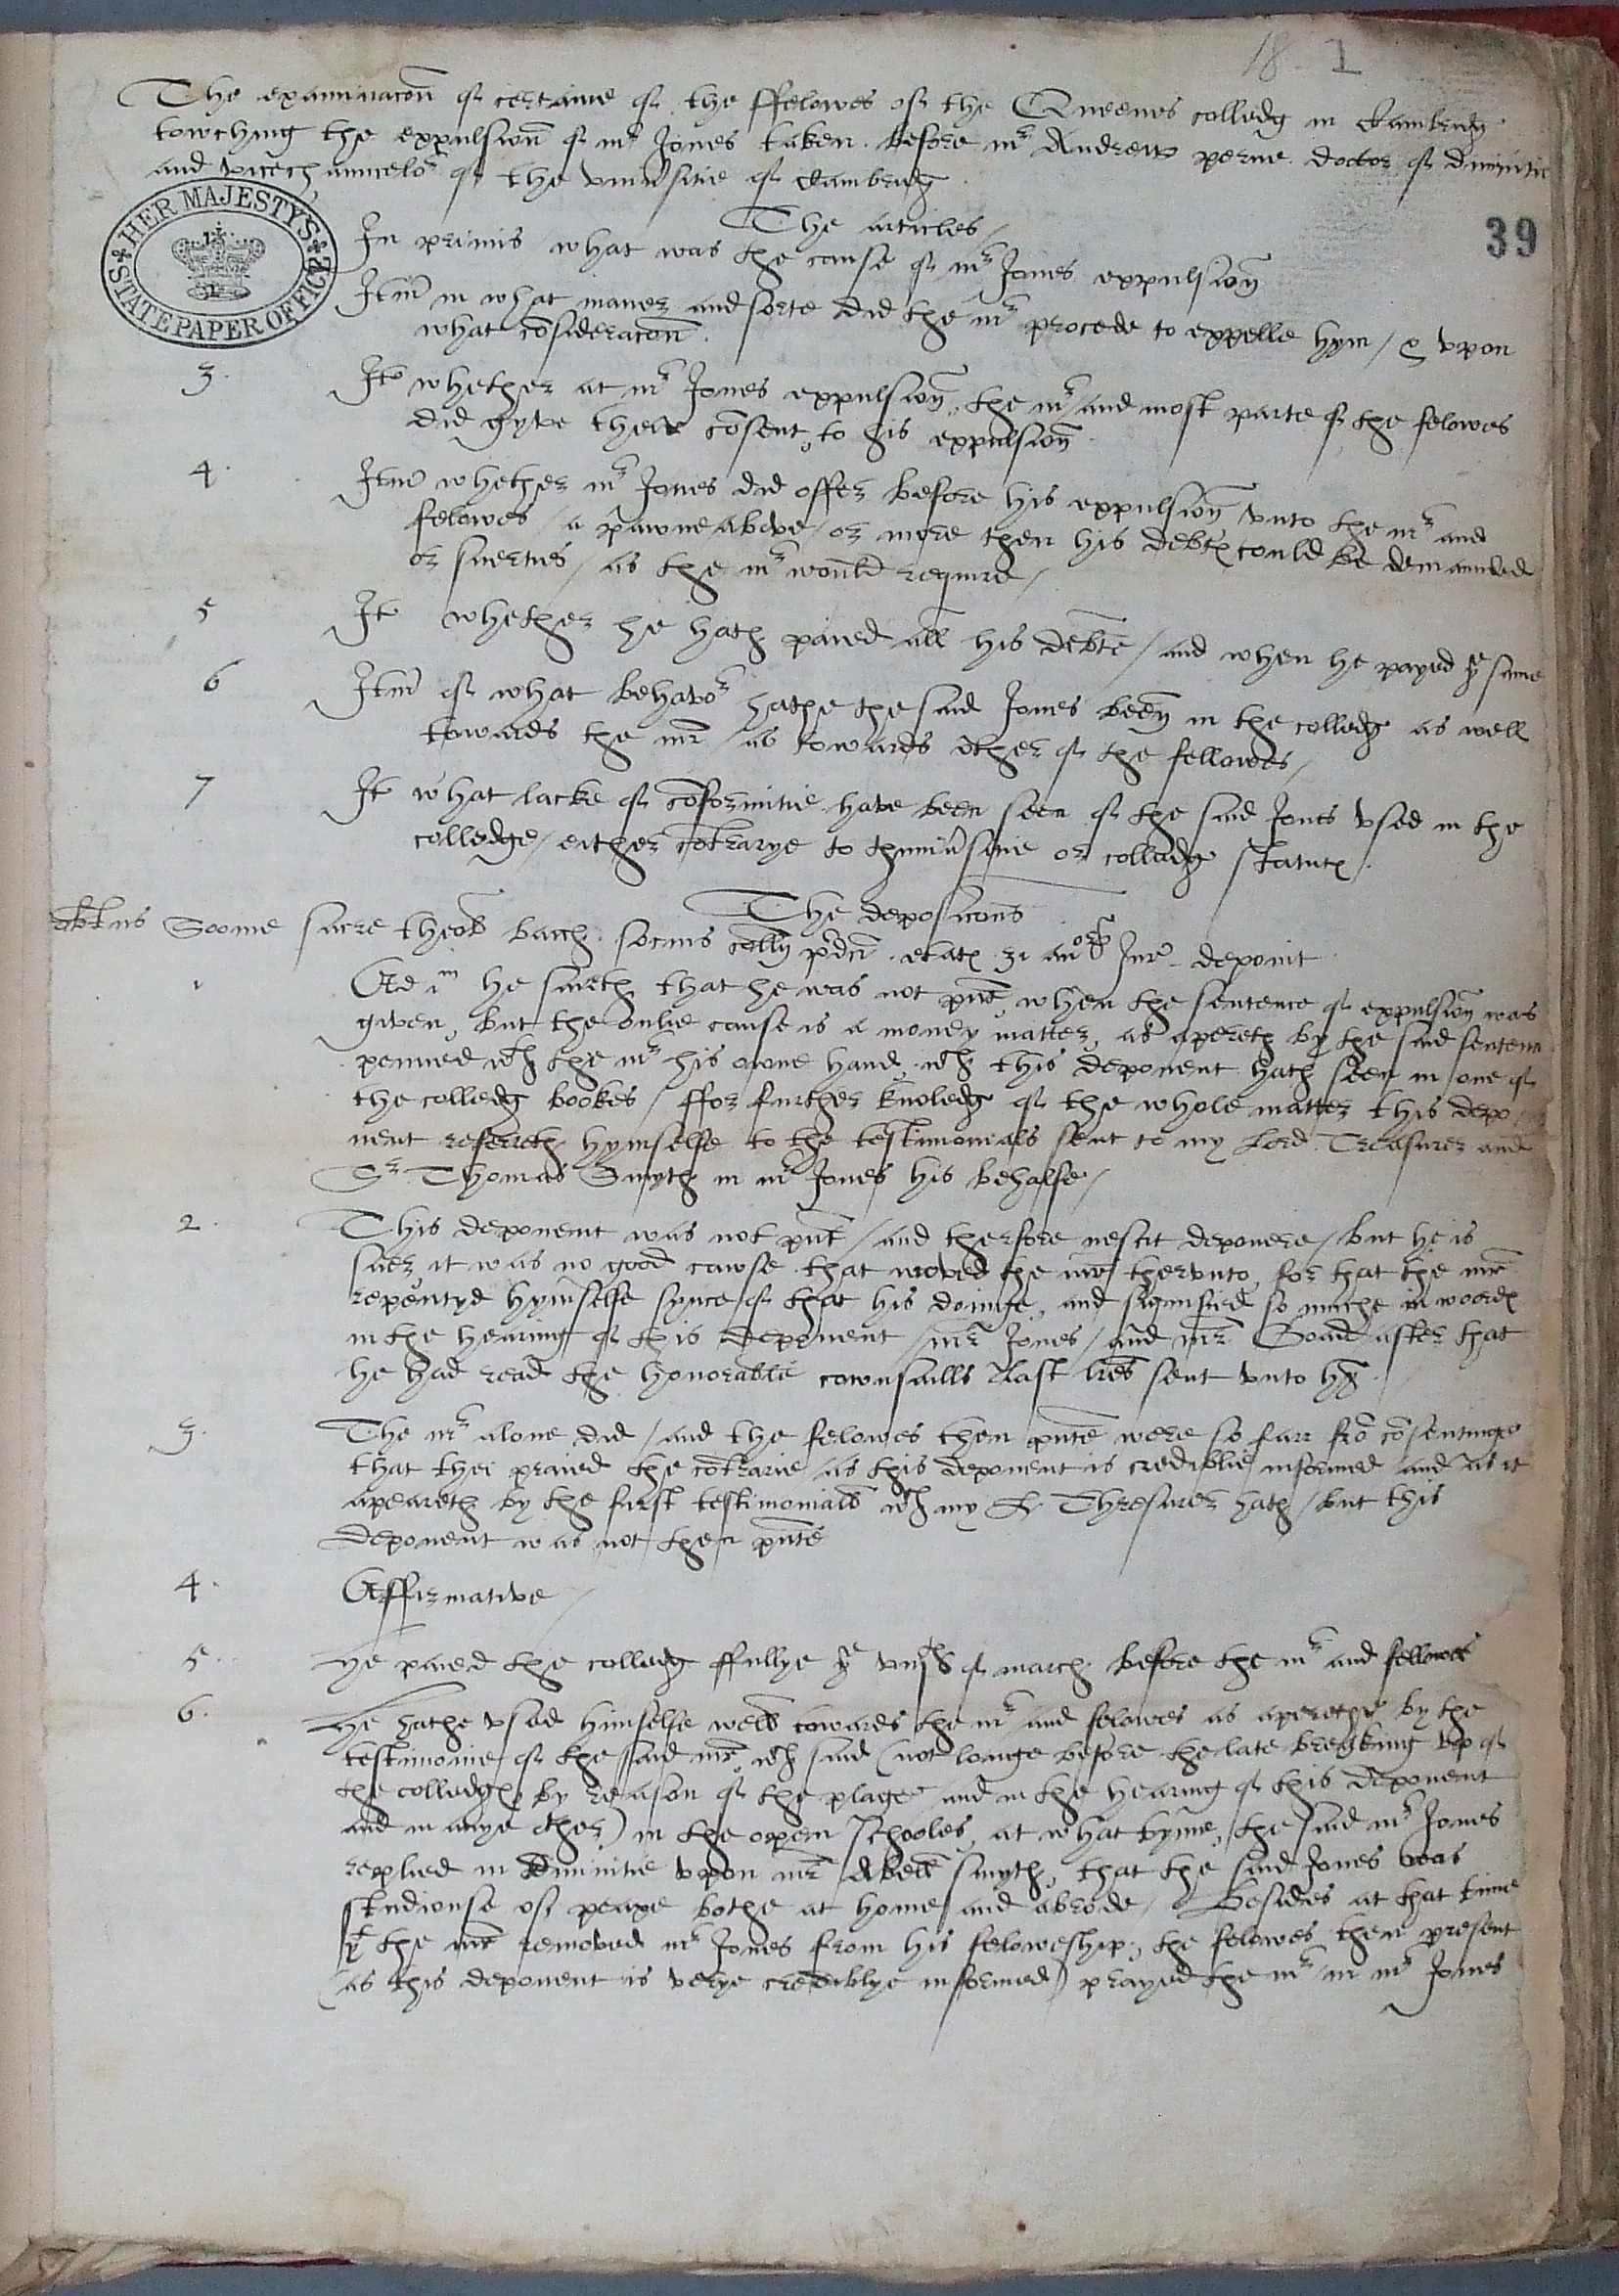 18. 1
The examinacon of certaine of the ffelowes of the Queenes colledg in Cambridg
towching the expulsion of mr Jones taken before mr Andrew perne doctor of divinitie
and vicechauncelor of the vniversitie of Cambridg
39
HER MAJESTY'S STATE PAPER OFFICE
The articles
In primis what was the cause of mr Jones expulsion
Itm in what maner and sorte did the mr procede to expelle hym / & vpon
what consideracon.
3. It whether at mr Jones expulsion, the mr and most parte of the felowes
did gyve their consent to his expulsion
4. Itm whether mr Jones did offer before his expulsion vnto the mr and
felowes / a pawne above / or more then his debtes could be demaunded
or suerties / as the mr would require /
5 It whether he hath paied all his debte / and when he payed ye same
6 Itm of what behavor hathe the said Jones been in the colledg as well
towards the mr / as towards other of the fellowes /
7 It what lacke of conformitie have been seen of the said Jones vsed in the
colledge / either contrarye to thuniversitie or colledg statutes.
The deposicons
Robtus Soome sacre theol bacch. socius collij pdci etatis 31 annoru Jur deponit
1 Ad im he saieth that he was not pnte when the sentence of expulsion was
given, but the onlie cause is a money matter, as apereth by the said senten
penned wth the mr his owne hand, wch this deponent hath seen in one of
the colledg bookes / ffor further knoledg of the whole matter this depo
nent refereth hymselfe to the testimonials sent to my Lord Treasurer and
Sr Thomas Smyth in mr Jones his behalfe /
2. This deponent was not pnt / and therfore nescit deponere / but he is
suer it was no good cawse that moved the mr thervnto, for that the mr
repentyd hymselfe synce of that his doinge, and signified so muche in woordes
in the hearing of this deponent / mr Jones / and mr after that
he had read the honorable cownsaills last lres sent vnto hym.
3. The mr alone did / and the felowes then pnte were so farr fro consentinge
that thei praied the contrarie / as this deponent is crediblie informed and as it
apeareth by the first testimonials wch my L Thresurer hath / but this
deponent was not then pnte
4. Affirmative /
5. He paied the colledg ffullye ye of march before the mr and fellowes
6. He hathe vsed himselfe well towards the mr and felowes as aperethe by the
testimonie of the said mr wch said (not longe before the late breaking vp of
the colledg by reason of the plage and in the hearing of this deponent
and manye other) in the open schooles, at what tyme, the said mr Jones
replied in Divinitie vpon mr Abell smyth, that the said Jones was
studiouse of peace bothe at home and abrode, Besides at that time
yt the mr removed mr Jones from his feloweship, the felowes then present
(as this deponent is verye crediblye informed) prayed the mr in mr Jones